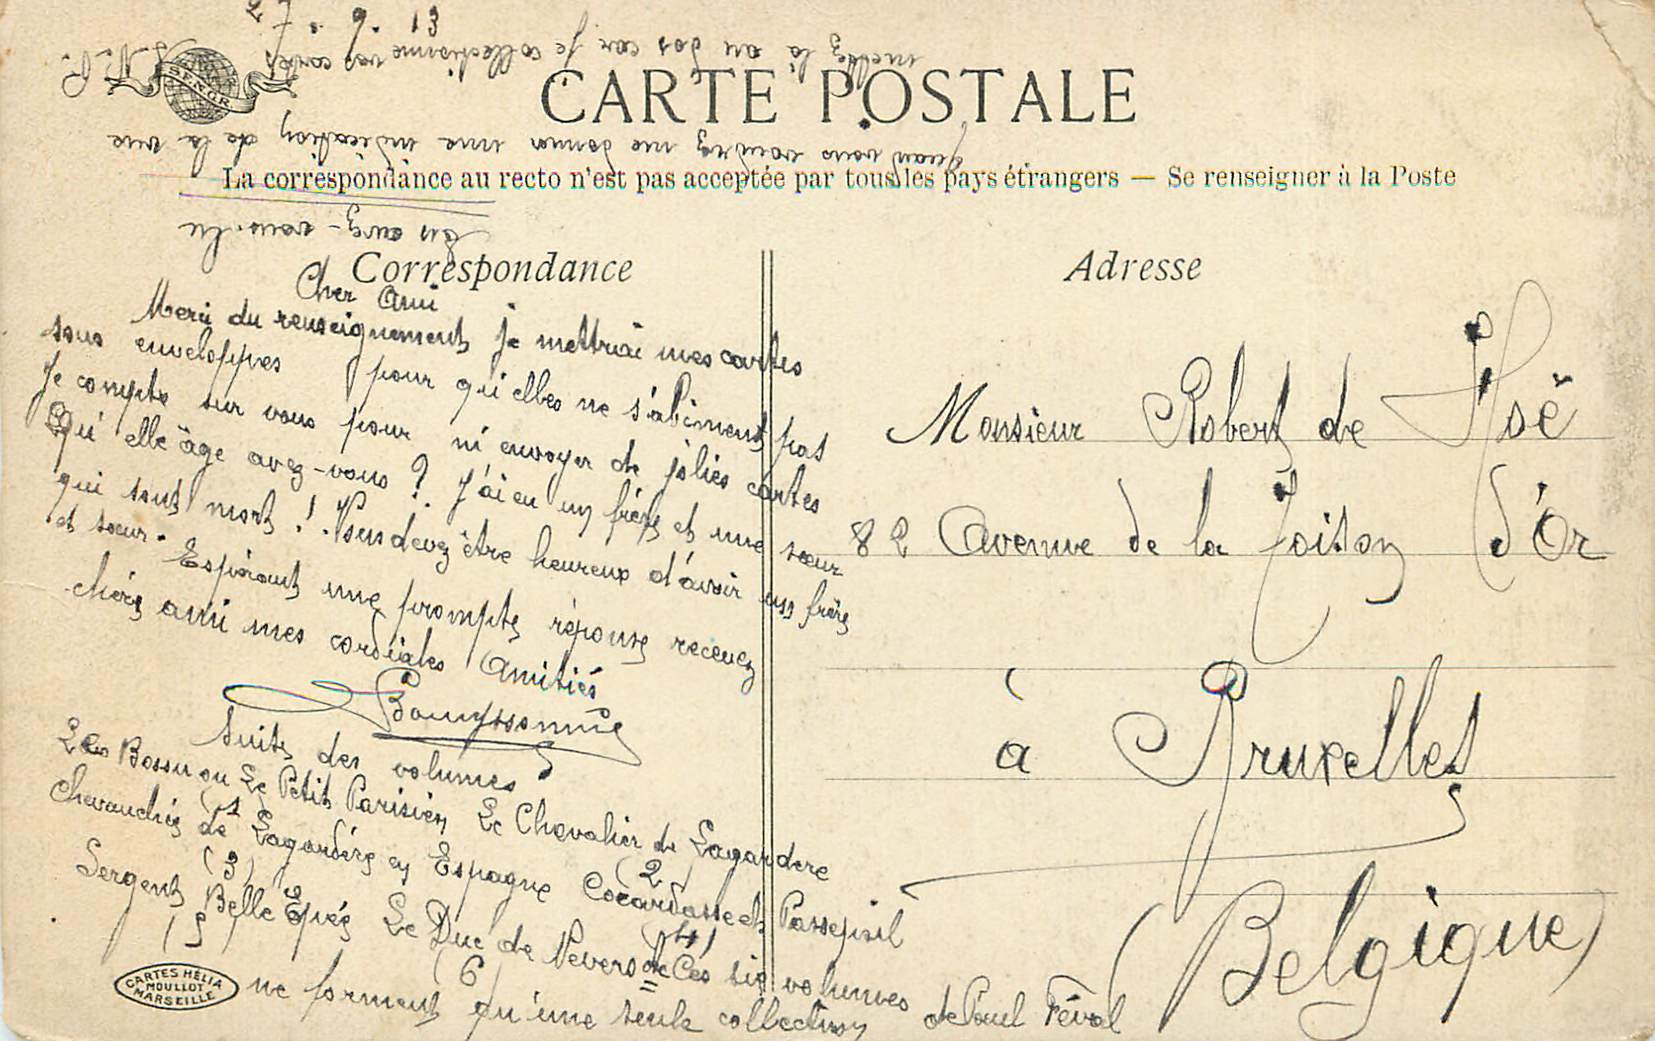 CARTE POSTALE
La correspondance au recto n'est pas acceptée par tous les pays étrangers — Se renseigner à la Poste
Correspondance
Adresse
SENGR.
Cher Ami
Merci du renseignement je mettrai mes cartes
sous enveloppes pour qu'elles ne s'abîment pas
Je compte sur vous pour m'envoyer de jolies cartes
Qu'elle âge avez-vous ? J'ai eu un frère et une sœur
qui sont mort ! Vous devez être heureux d'avoir un frère
et sœur. Espérant une prompte réponse recevez
chère ami mes cordiales Amitiés
suite des volumes
Le Bossu ou Le Petit Parisien Le Chevalier de Lagardere
(1) (2)
Chevauchés de Lagardère en Espagne Cocardasse et Passepoil
(3) (4)
Sergent Belle Epée Le Duc de Nevers Ces six volumes
(5 (6
ne forment qu'une seule collection de Paul Féval
CARTES HELIA
MOULLOT
MARSEILLE
Monsieur Robert de Hoë
82 Avenue de la Toison d'Or
à Bruxelles
(Belgique)
en avez-vous lu
quand vous voudrez me donner une indication de la vue
mettez la au dos car je collectionne vos cartes